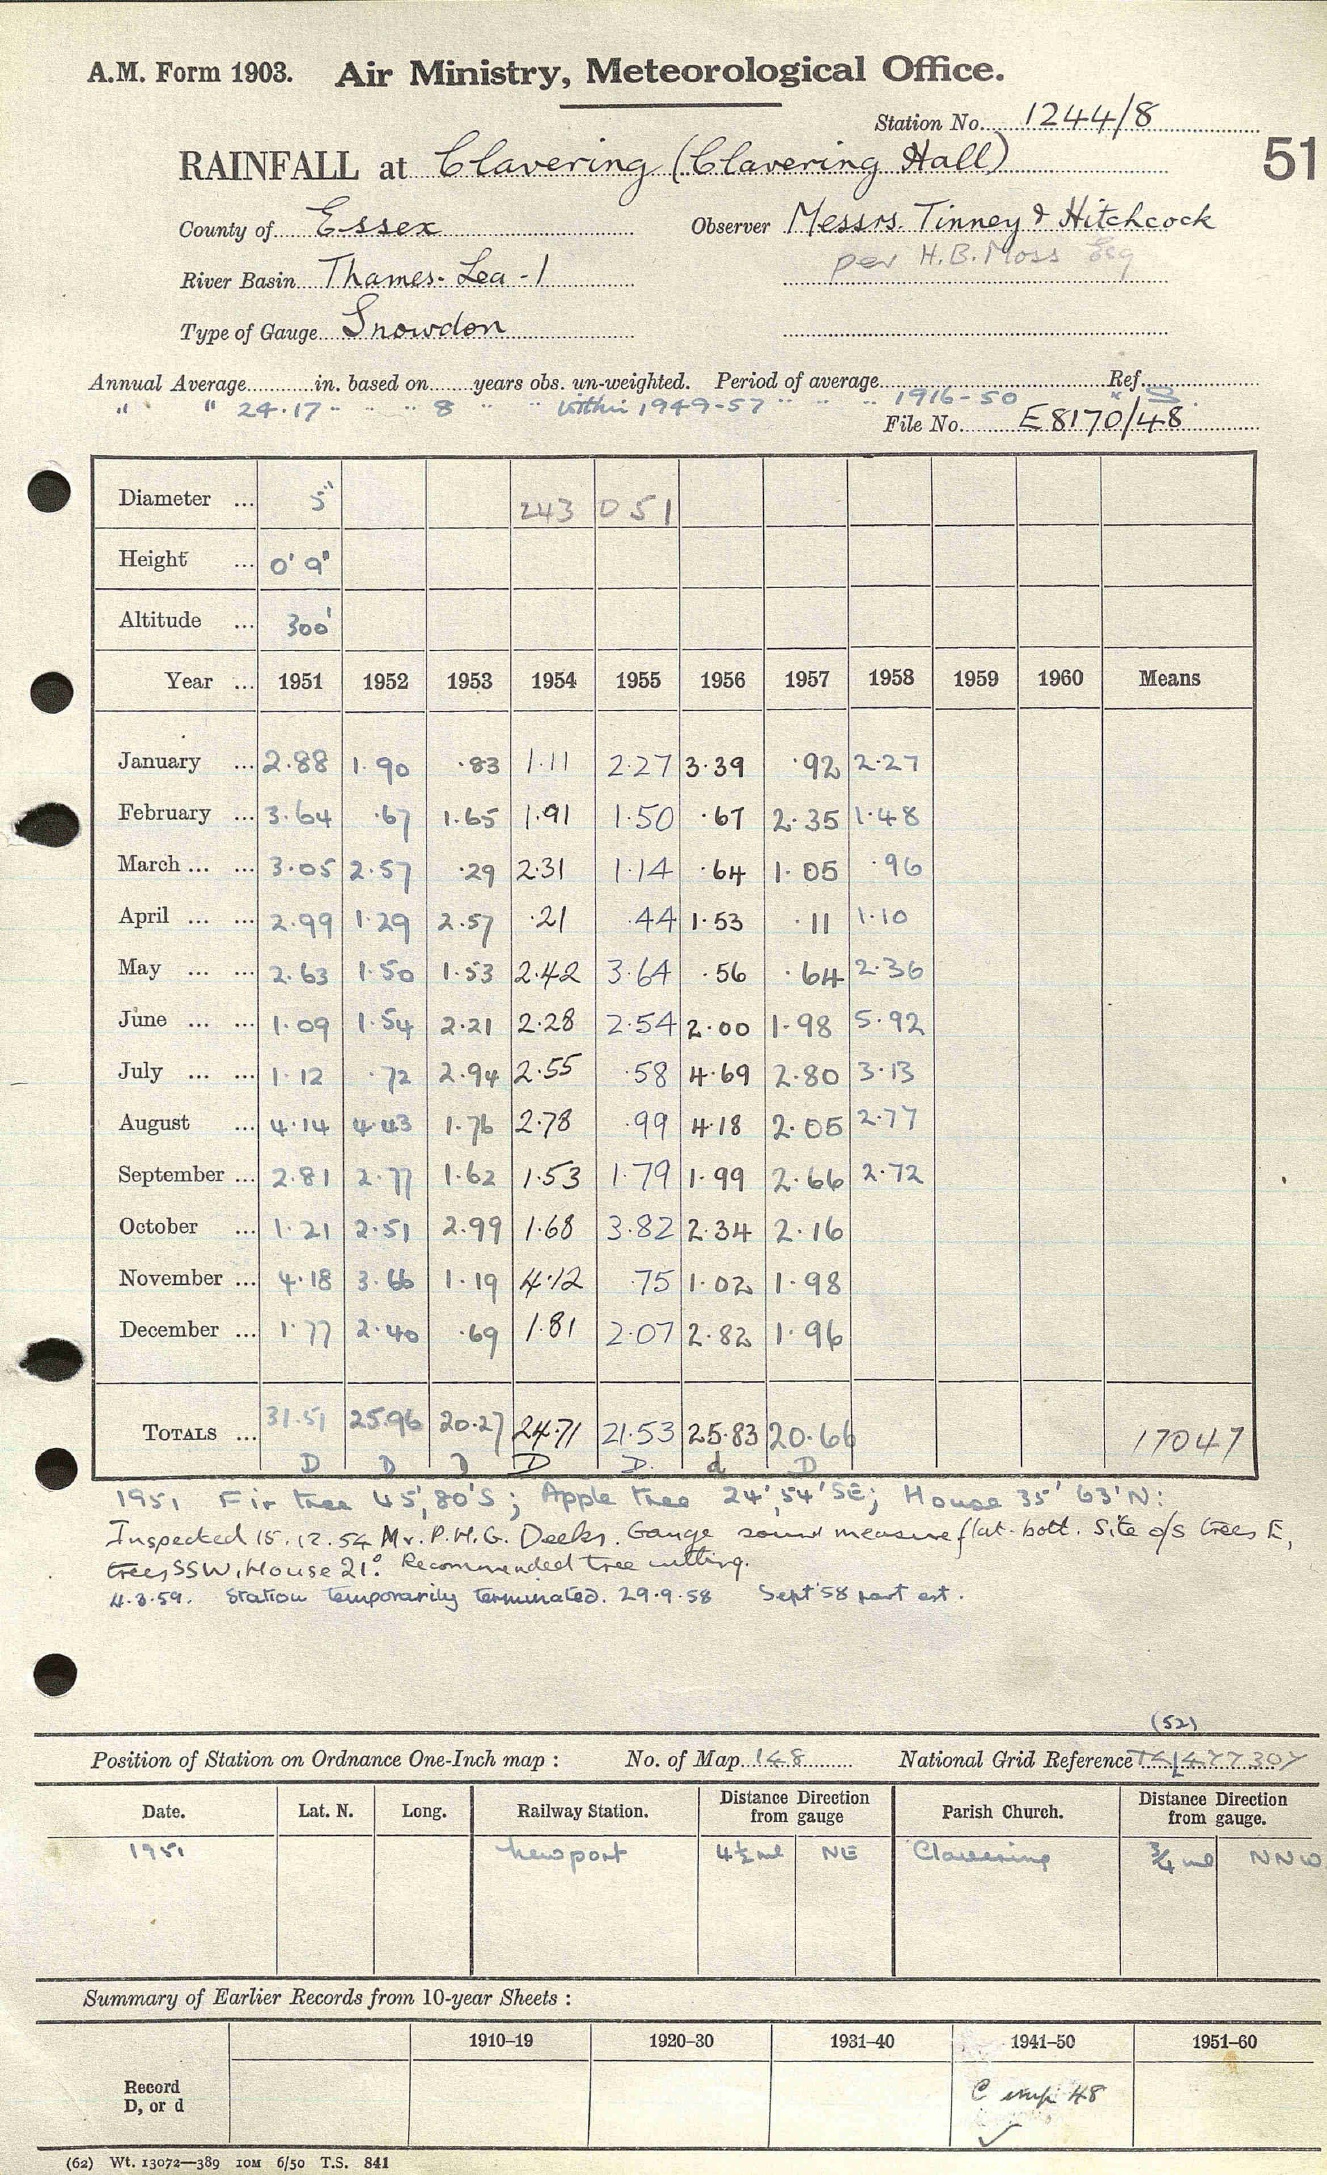 A.M. Form 1903. Air Ministry, Meteorological Office.
Station No. 1244/8
RAINFALL at Clavering (Clavering Hall)
51
County of Essex Observer Messrs. Tinney & Hitchcock
per H.B. Moss Esq
River Basin Thames-Lea-1
Type of Gauge Snowdon
Annual Average in. based on years obs. un-weighted. Period of average Ref.
" " 24.17 " " " 8 " " within 1949-57 " " " 1916-50 " S.
File No. E8170/48
Diameter ... 5" 243 051
Height ... 0' 9"
Altitude ... 300'
Year ... 1951 1952 1953 1954 1955 1956 1957 1958 1959 1960 Means
January ... 2.88 1.90 .83 1.11 2.27 3.39 .92 2.27
February ... 3.64 .67 1.65 1.91 1.50 .67 2.35 1.48
March ... ... 3.05 2.57 .29 2.31 1.14 .64 1.05 .96
April ... ... 2.99 1.29 2.57 .21 .44 1.53 .11 1.10
May ... ... 2.63 1.50 1.53 2.42 3.64 .56 .64 2.36
June ... ... 1.09 1.54 2.21 2.28 2.54 2.00 1.98 5.92
July ... ... 1.12 .72 2.94 2.55 .58 4.69 2.80 3.13
August ... 4.14 4.43 1.76 2.78 .99 4.18 2.05 2.77
September ... 2.81 2.77 1.62 1.53 1.79 1.99 2.66 2.72
October ... 1.21 2.51 2.99 1.68 3.82 2.34 2.16
November ... 4.18 3.66 1.19 4.12 .75 1.02 1.98
December ... 1.77 2.40 .69 1.81 2.07 2.82 1.96
TOTALS ... 31.51 25.96 20.27 24.71 21.53 25.83 20.66 17047
D D D D D. d D
1951 Fir tree 45', 80'S; Apple tree 24', 54'SE; House 35' 63'N:
Inspected 15.12.54 Mr. P.H.G. Deeks. Gauge sound measure flat-bott. Site o/s trees E,
trees SSW, House 21°. Recommended tree cutting.
4.3.59. Station temporarily terminated. 29.9.58 Sept '58 part est.
(52)
Position of Station on Ordnance One-Inch map : No. of Map 148 National Grid Reference
Date. Lat. N. Long. Railway Station. Distance from gauge Direction Parish Church. Distance from gauge. Direction
1951 Newport 4½ ml NE Clavering ¾ ml NNW
Summary of Earlier Records from 10-year Sheets :
1910–19 1920–30 1931–40 1941–50 1951–60
Record
D, or d
C 48
(62) Wt. 13072—389 10M 6/50 T.S. 841